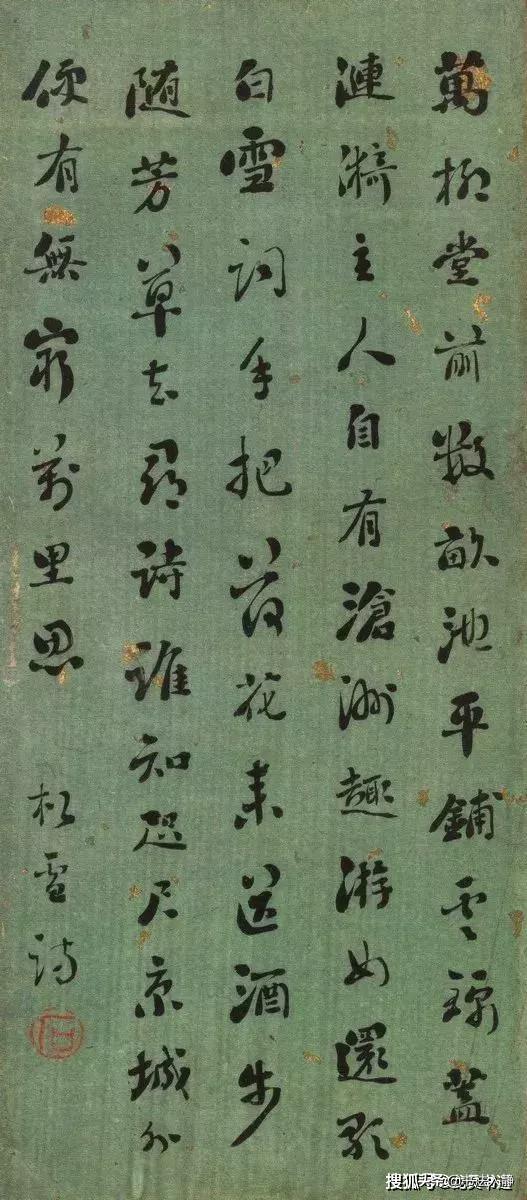 萬柳堂前數畝池平鋪雲錦蓋
漣漪主人自有滄洲趣游女還歌
白雪詞手把荷花來送酒步
随芳草去尋詩誰知咫尺京城外
便有無窮萬里思 松雪詩